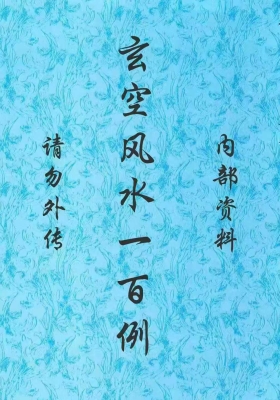 内部资料
玄空风水一百例
请勿外传